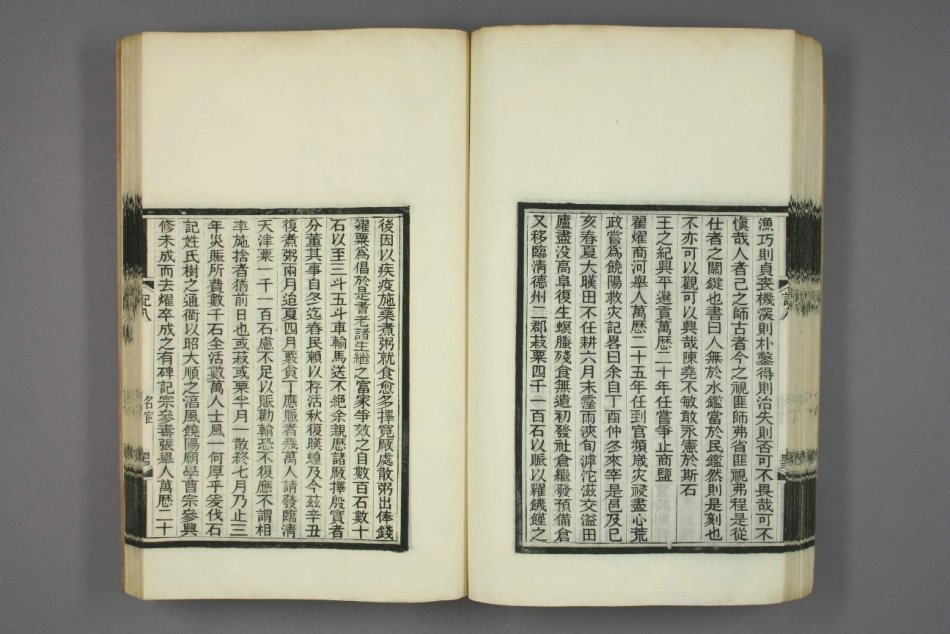 漁巧則貞喪機深則朴鑿得則治失則否可不畏哉可不
慎哉人者己之師古者今之視匪師弗省匪視弗程是從
仕者之關鍵也書曰人無於水鑑當於民鑑然則是刻也
不亦可以觀可以興哉陳堯不敏敢永憲於斯石
王之紀興平選貢萬歷二十年任嘗爭止商鹽
翟燿商河舉人萬歷二十五年任到官頻歲灾祲盡心荒
政嘗爲饒陽救灾記畧曰余自丁酉仲冬來宰是邑及己
亥春夏大暵田不任耕六月末霪雨浹旬滹沱滋交溢田
廬盡没高阜復生螟螣殘食無遺初發社倉繼發預備倉
又移臨清德州二郡菽粟四千一百石以賑以糴饑饉之
後因以疾疫施藥煮粥就食愈多擇寬厰處散粥出俸錢
糴粟爲倡於是耆老諸生繼之富家爭效之自數百石數十
石以至三斗五斗車輸馬送不絕余親歷諸厰擇殷實者
分董其事自冬迄春民賴以存活秋復暵蝗及今茲辛丑
復煮粥兩月迫夏四月覈貧丁應賑者幾萬人請發臨清
天津粟一千一百石慮不足以賑勸輸恐不復應不謂相
率施捨者猶前日也或菽或粟半月一散終七月乃止三
年災賑所費數千石全活數萬人士風一何厚乎爰伐石
記姓氏樹之通衢以昭大順之滈風饒陽廟學曹宗參興
修未成而去燿卒成之有碑記宗參壽張舉人萬歷二十
記八
名宦